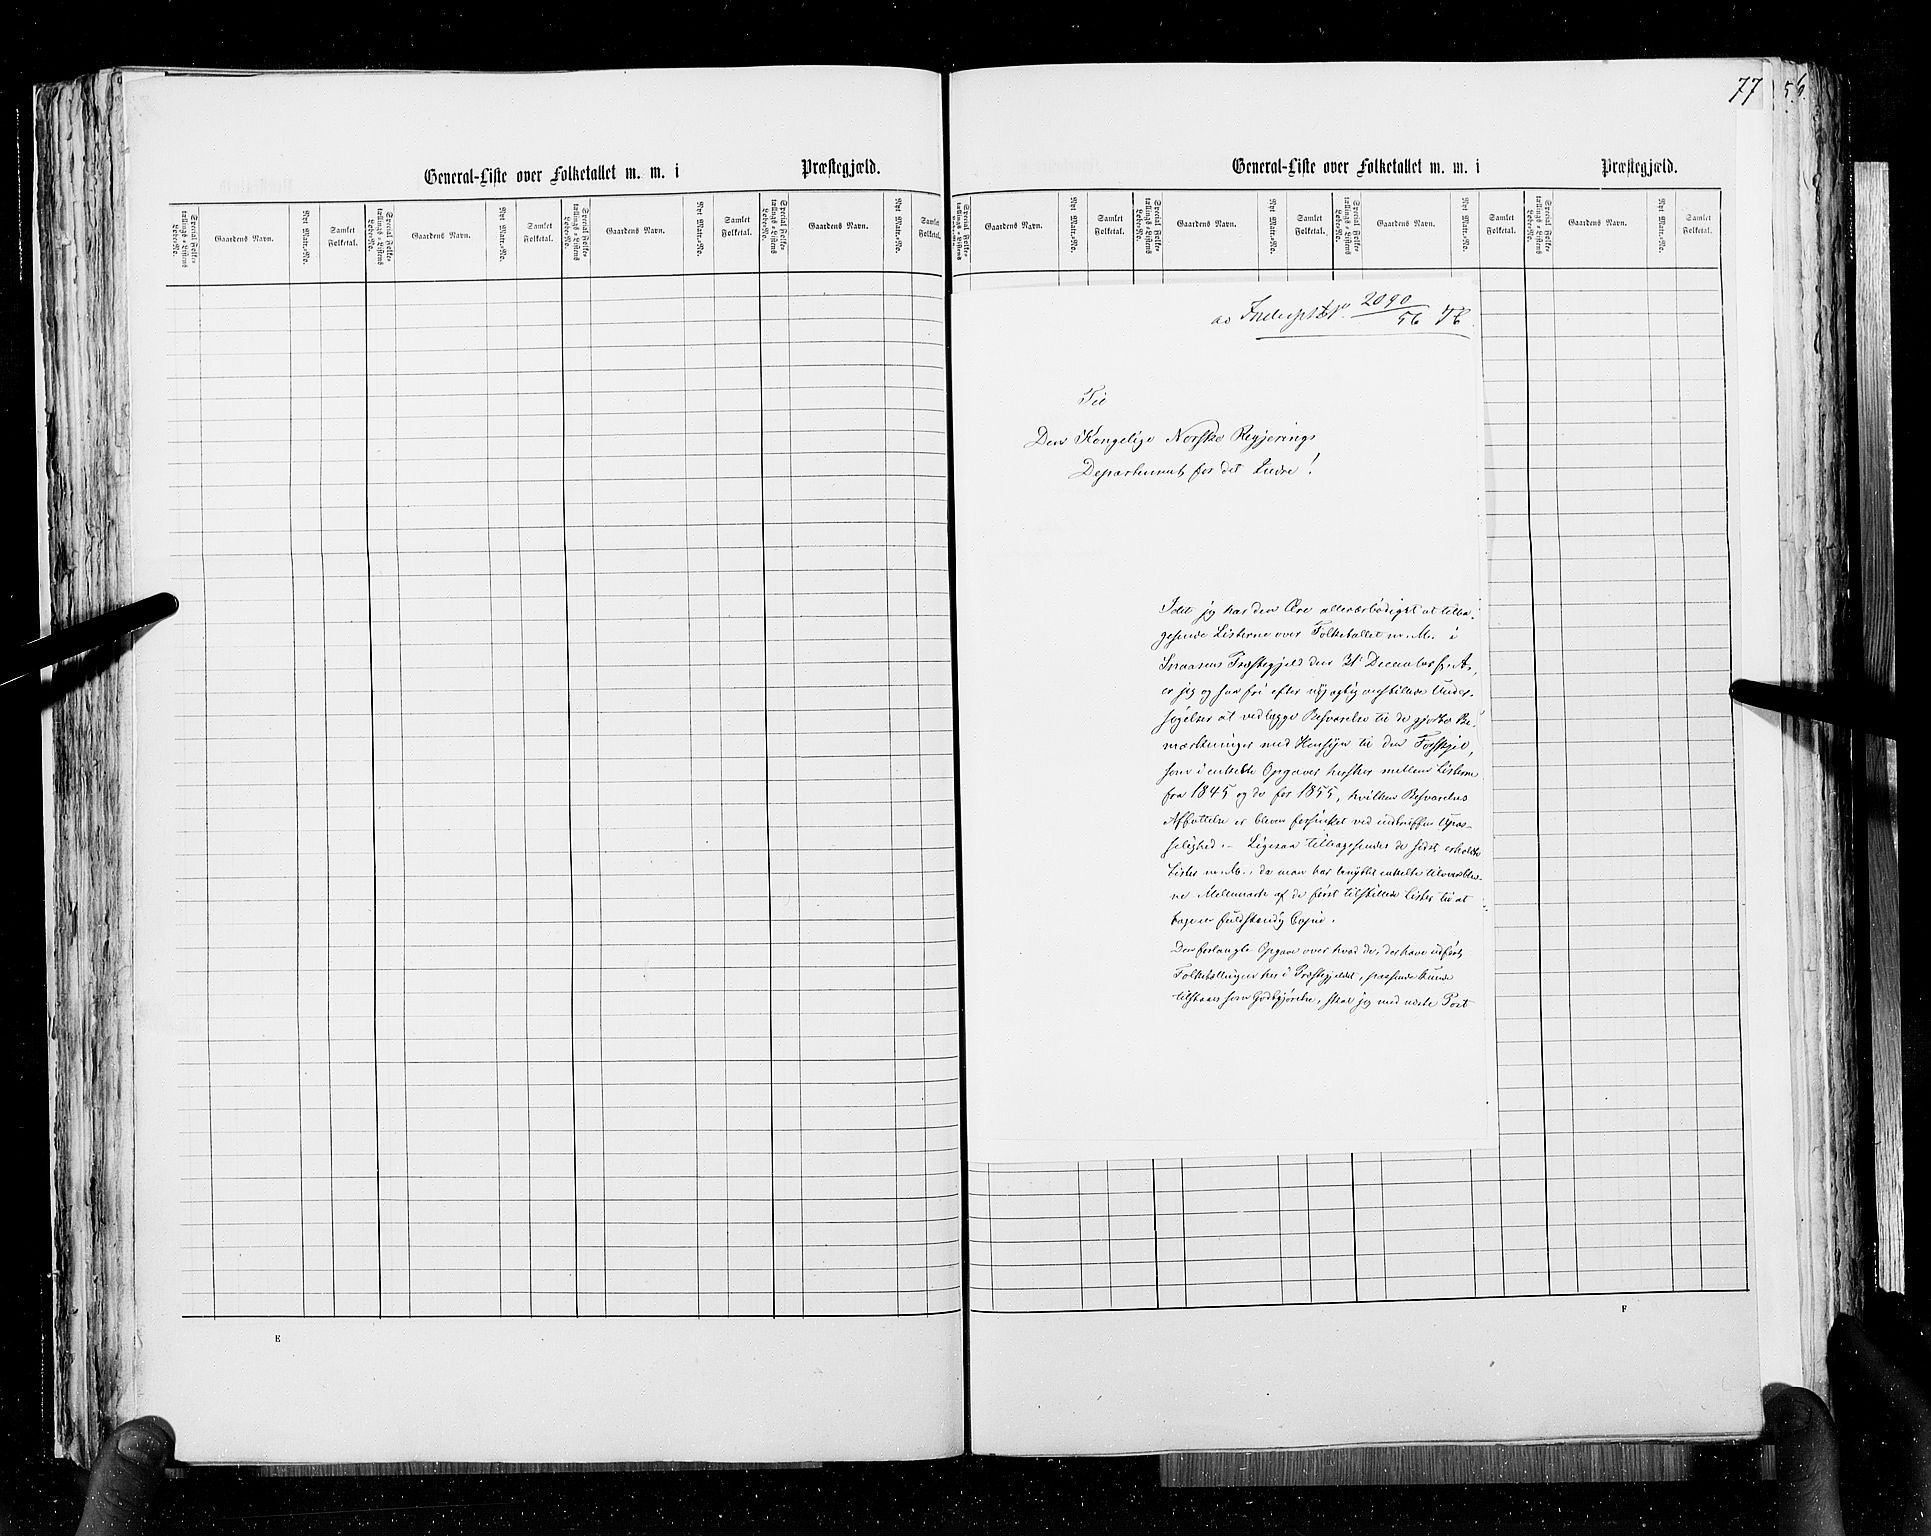 77
56.
General-Liste over Folketallet m. m. i Præstegjæld.
Special Folketællings-Listens Løbe-No. Gaardens Navn. Nyt Matr.-No. Samlet Folketal. Special Folketællings-Listens Løbe-No. Gaardens Navn. Nyt Matr.-No. Samlet Folketal. Special Folketællings-Listens Løbe-No. Gaardens Navn. Nyt Matr.-No. Samlet Folketal. Special Folketællings-Listens Løbe-No. Gaardens Navn. Nyt Matr.-No. Samlet Folketal.
E
General-Liste over Folketallet m. m. i Præstegjæld.
Special Folketællings-Listens Gaardens Navn. Nyt Matr.-No. Samlet Folketal. Special Folketællings-Listens Løbe-No. Gaardens Navn. Nyt Matr.-No. Samlet Folketal. Special Folketællings-Listens Løbe-No. Gaardens Navn. Nyt Matr.-No. Samlet Folketal. Special Folketællings-Listens Løbe-No. Gaardens Navn. Nyt Matr.-No. Samlet Folketal.
2090
56
Til
Den Kongelige Norske Regjerings
Departement for det Indre!
Idet jeg har den Ære allerærbødigst at tilba-
gesende Listerne over Folketallet m. M. i
Snaasens Præstegjeld den 31 December f. A.,
er jeg og saa fri efter nøjagtig anstillede Under-
søgelser at vedlægge Besvarelse til de gjorte Be-
mærkninger med Hensyn til den Forskjel,
som i enkelte Opgaver hersker mellem Listerne
fra 1845 og de for 1855, hvilken Besvarelses
Affattelse er bleven forsinket ved indtruffen Upas-
selighed. – Ligesaa tilbagesendes de sidst erholdte
Lister m. M., da man har benyttet enkelte tiloversblev-
ne af de først tilstillede Lister til at
tage en fuldstændig Copie.
Den forlangte Opgave over hvad de, der have udført
Folketællingen her i Præstegjeldet, passende kunde
tilstaaes som Godtgjørelse, skal jeg med næste Post
F